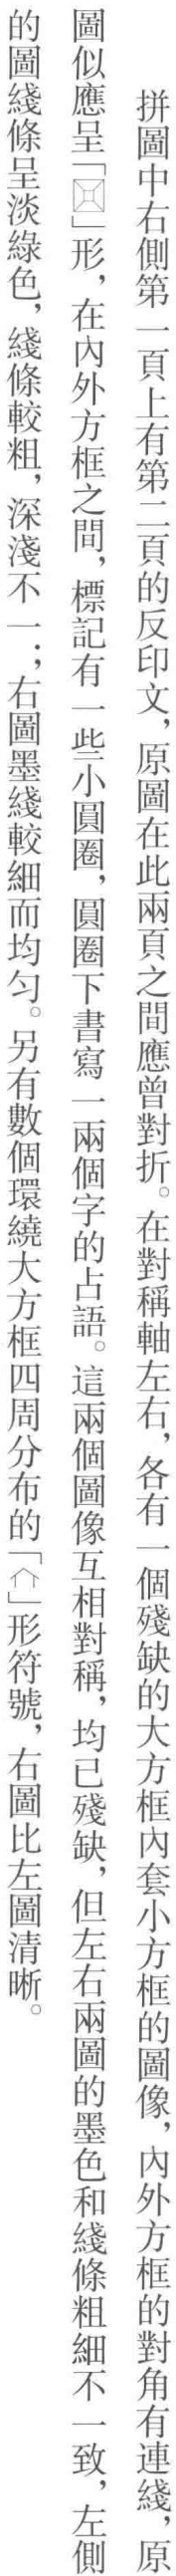 拼圖中右側第一頁上有第二頁的反印文，原圖在此兩頁之間應曾對折。在對稱軸左右，各有一個殘缺的大方框內套小方框的圖像，內外方框的對角有連綫，原
圖似應呈「」形，在內外方框之間，標記有一些小圓圈，圓圈下書寫一兩個字的占語。這兩個圖像互相對稱，均已殘缺，但左右兩圖的墨色和綫條粗細不一致，左側
的圖綫條呈淡綠色，綫條較粗，深淺不一；右圖墨綫較細而均勻。另有數個環繞大方框四周分布的「」形符號，右圖比左圖清晰。